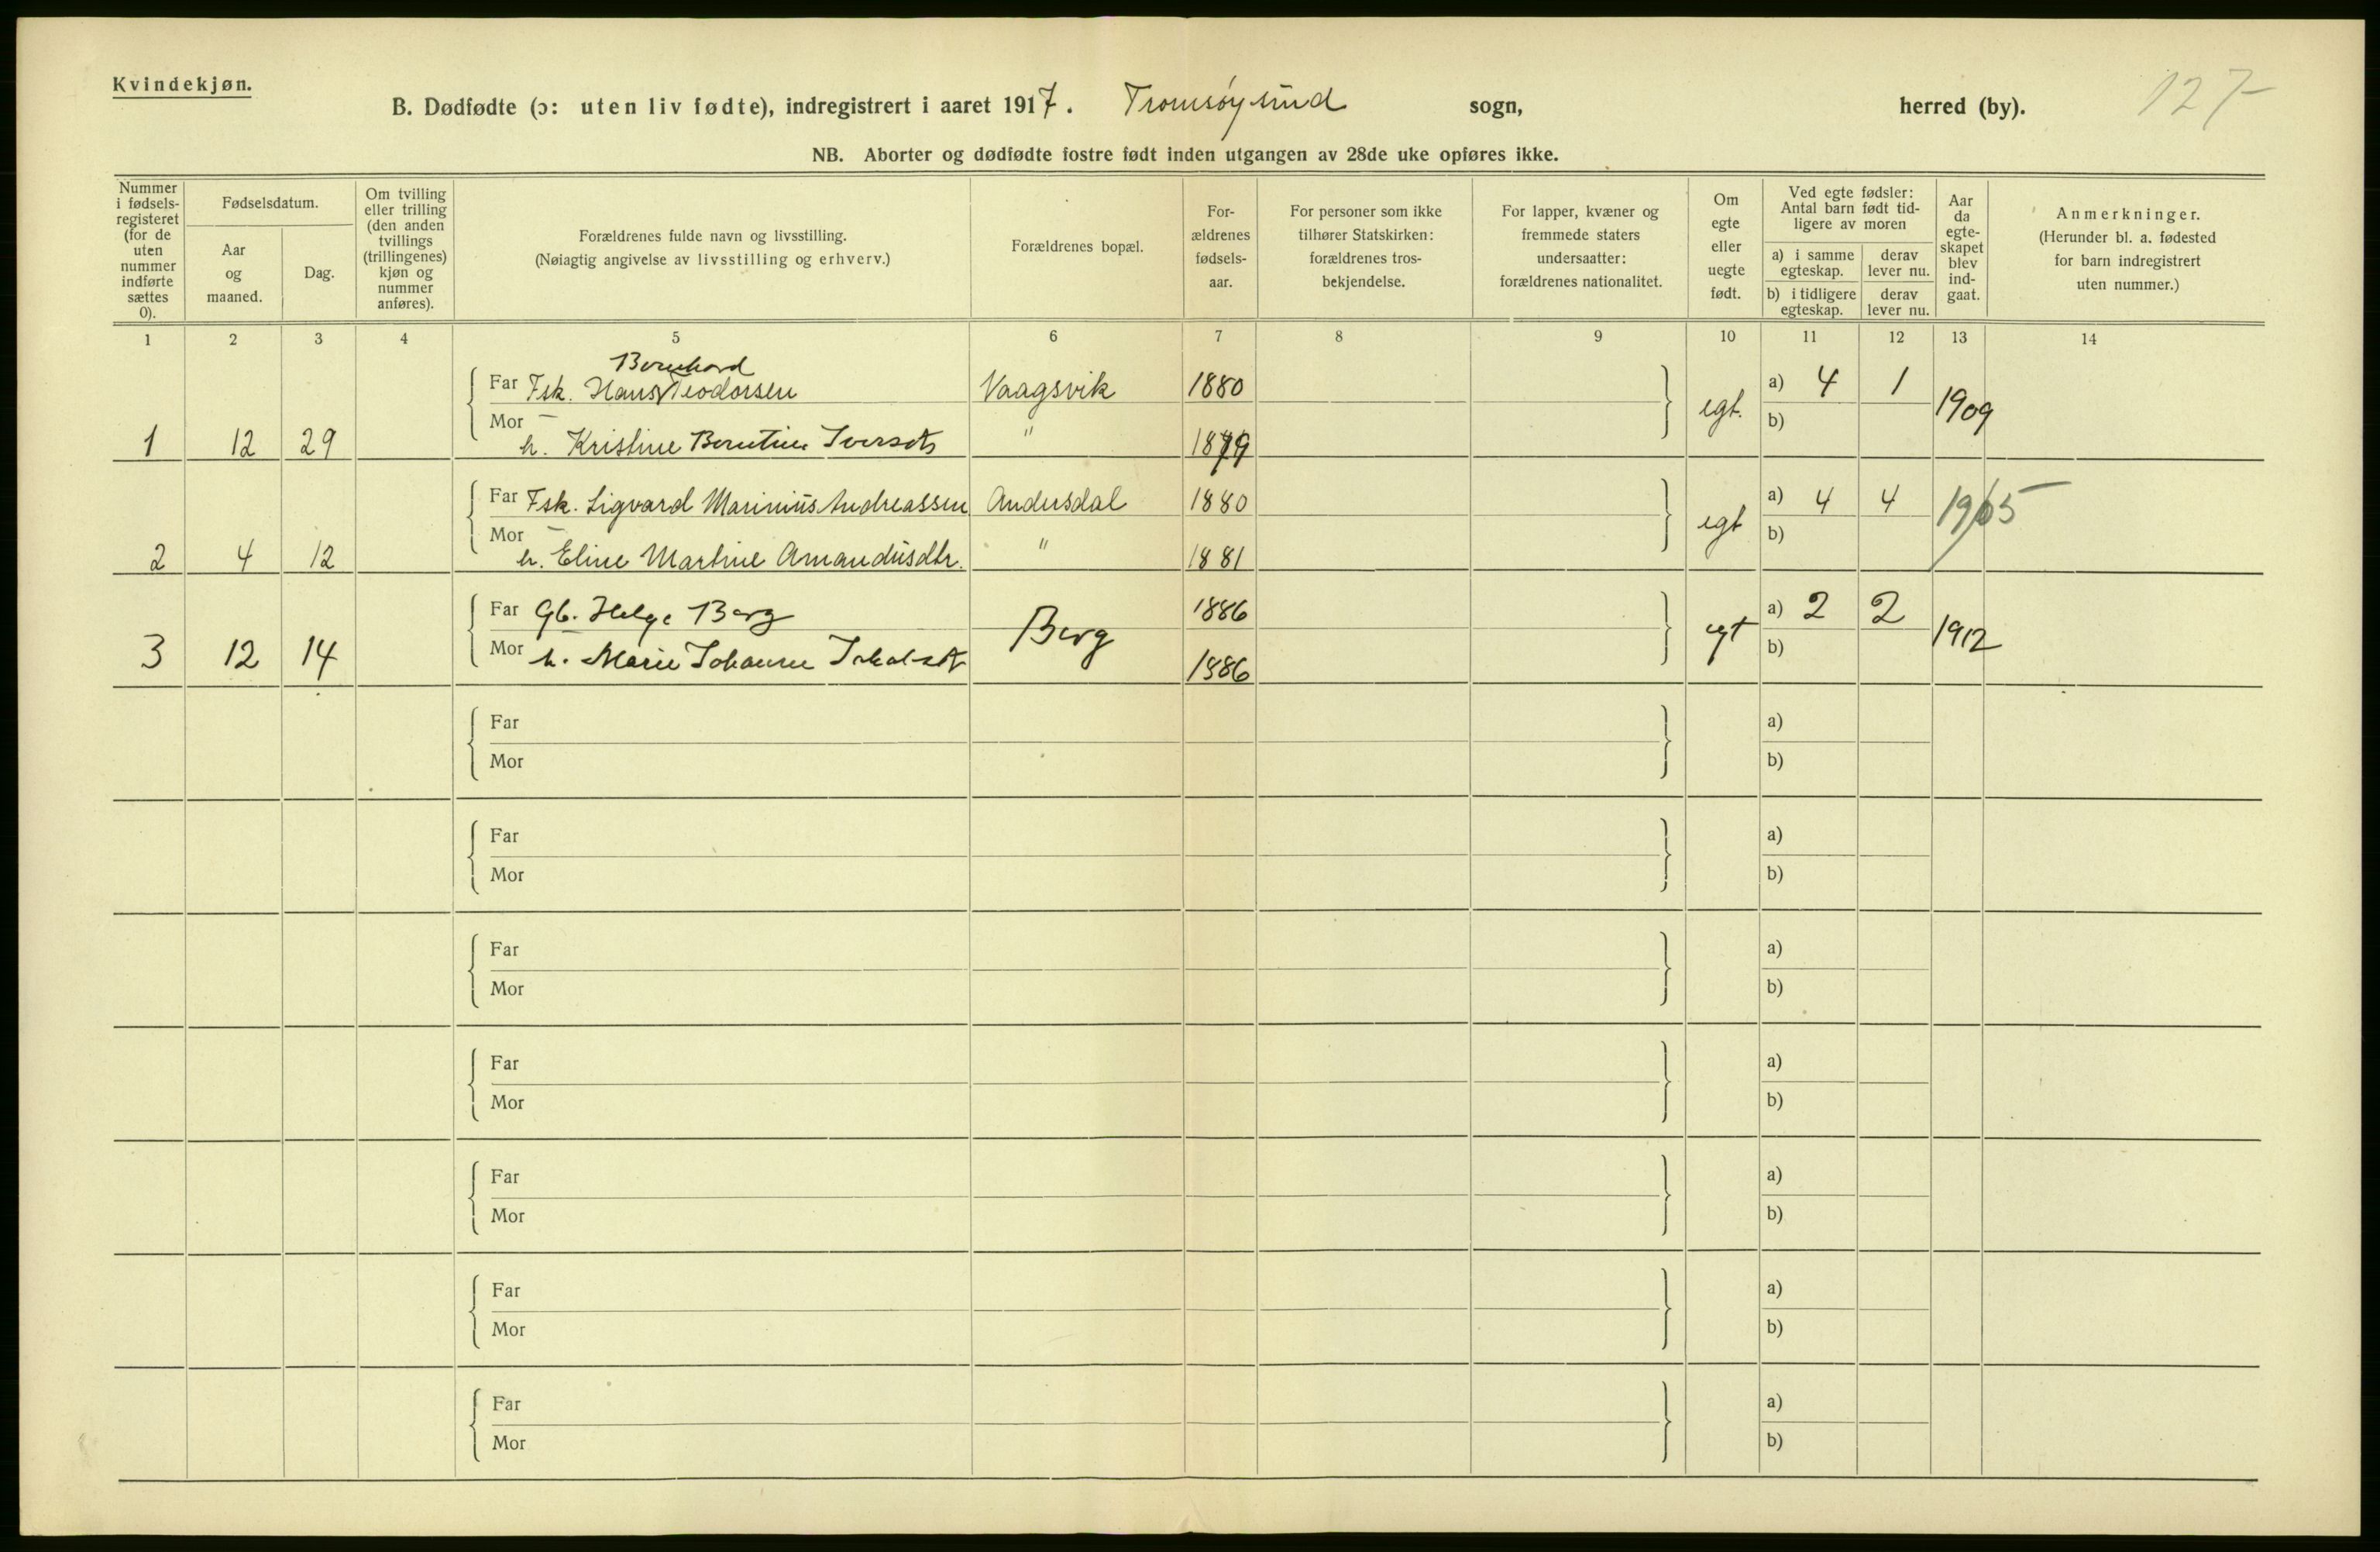 Kvindekjøn.
B. Dødfødte (ɔ: uten liv fødte), indregistrert i aaret 1917. Tromsøysund sogn, herred (by).
127
NB. Aborter og dødfødte fostre født inden utgangen av 28de uke opføres ikke.
Nummer i fødsels-registeret (for de uten nummer indførte sættes 0).
Fødselsdatum.
Aar og maaned.
Dag.
Om tvilling eller trilling (den anden tvillings (trillingenes) kjøn og nummer anføres).
Forældrenes fulde navn og livsstilling.
(Nøiagtig angivelse av livsstilling og erhverv.)
Forældrenes bopæl.
For-ældrenes fødsels-aar.
For personer som ikke tilhører Statskirken: forældrenes tros-bekjendelse.
For lapper, kvæner og fremmede staters undersaatter: forældrenes nationalitet.
Om egte eller uegte født.
Ved egte fødsler: Antal barn født tid-ligere av moren
a) i samme egteskap.
derav lever nu.
b) i tidligere egteskap.
derav lever nu.
Aar da egte-skapet blev ind-gaat.
Anmerkninger.
(Herunder bl. a. fødested for barn indregistrert uten nummer.)
1 2 3 4 5 6 7 8 9 10 11 12 13 14
Bernhard
Far Fsk. Hans Teodorsen Vaagsvik 1880 a) 4 1
egt. 1909
Mor b)
1 12 29 h. Kristine Berntine Iversdt " 1879
Far Fsk. Sigvard Marinius Andreassen Andersdal 1880 a) 4 4
egt 1905
Mor b)
2 4 12 h. Eline Martine Amandusdtr. " 1881
Far Gb. Helge Berg 1886 a) 2 2
Berg egt 1912
3 12 14 Mor h. Marie Johanne 1886 b)
Far a)
Mor b)
Far a)
Mor b)
Far a)
Mor b)
Far a)
Mor b)
Far a)
Mor b)
Far a)
Mor b)
Far a)
Mor b)